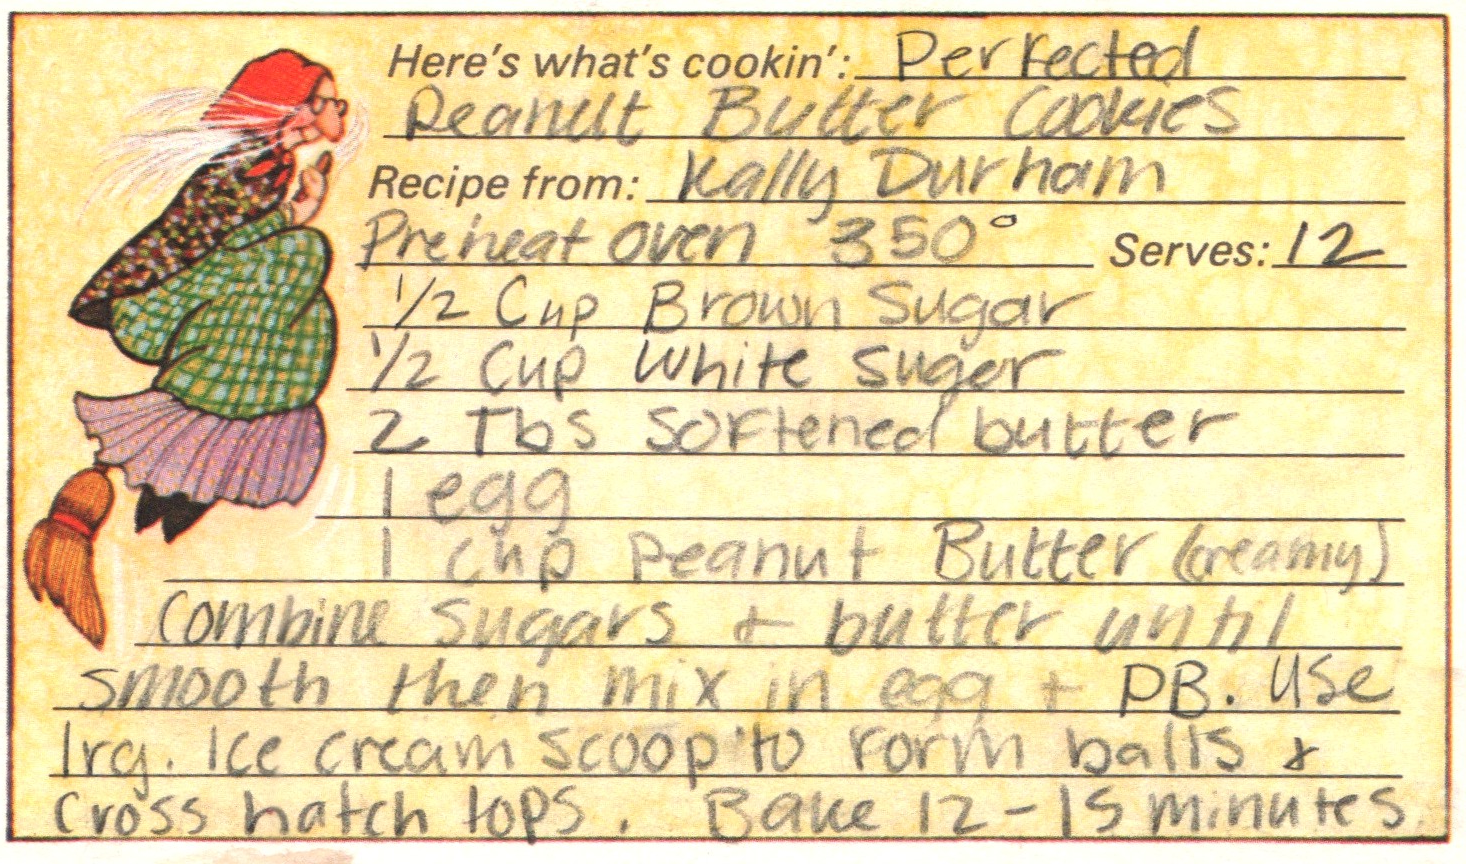 Here's what's cookin': Perfected
Peanut Butter Cookies
Recipe from: Kally Durham
Preheat oven 350° Serves: 12
1/2 Cup Brown Sugar
1/2 Cup White Suger
2 Tbs Softened butter
1 egg
1 cup Peanut Butter (creamy)
Combine Sugars + butter until
smooth then mix in egg + PB. Use
lrg. Ice cream scoop to form balls &
Cross hatch tops. Bake 12-15 minutes.